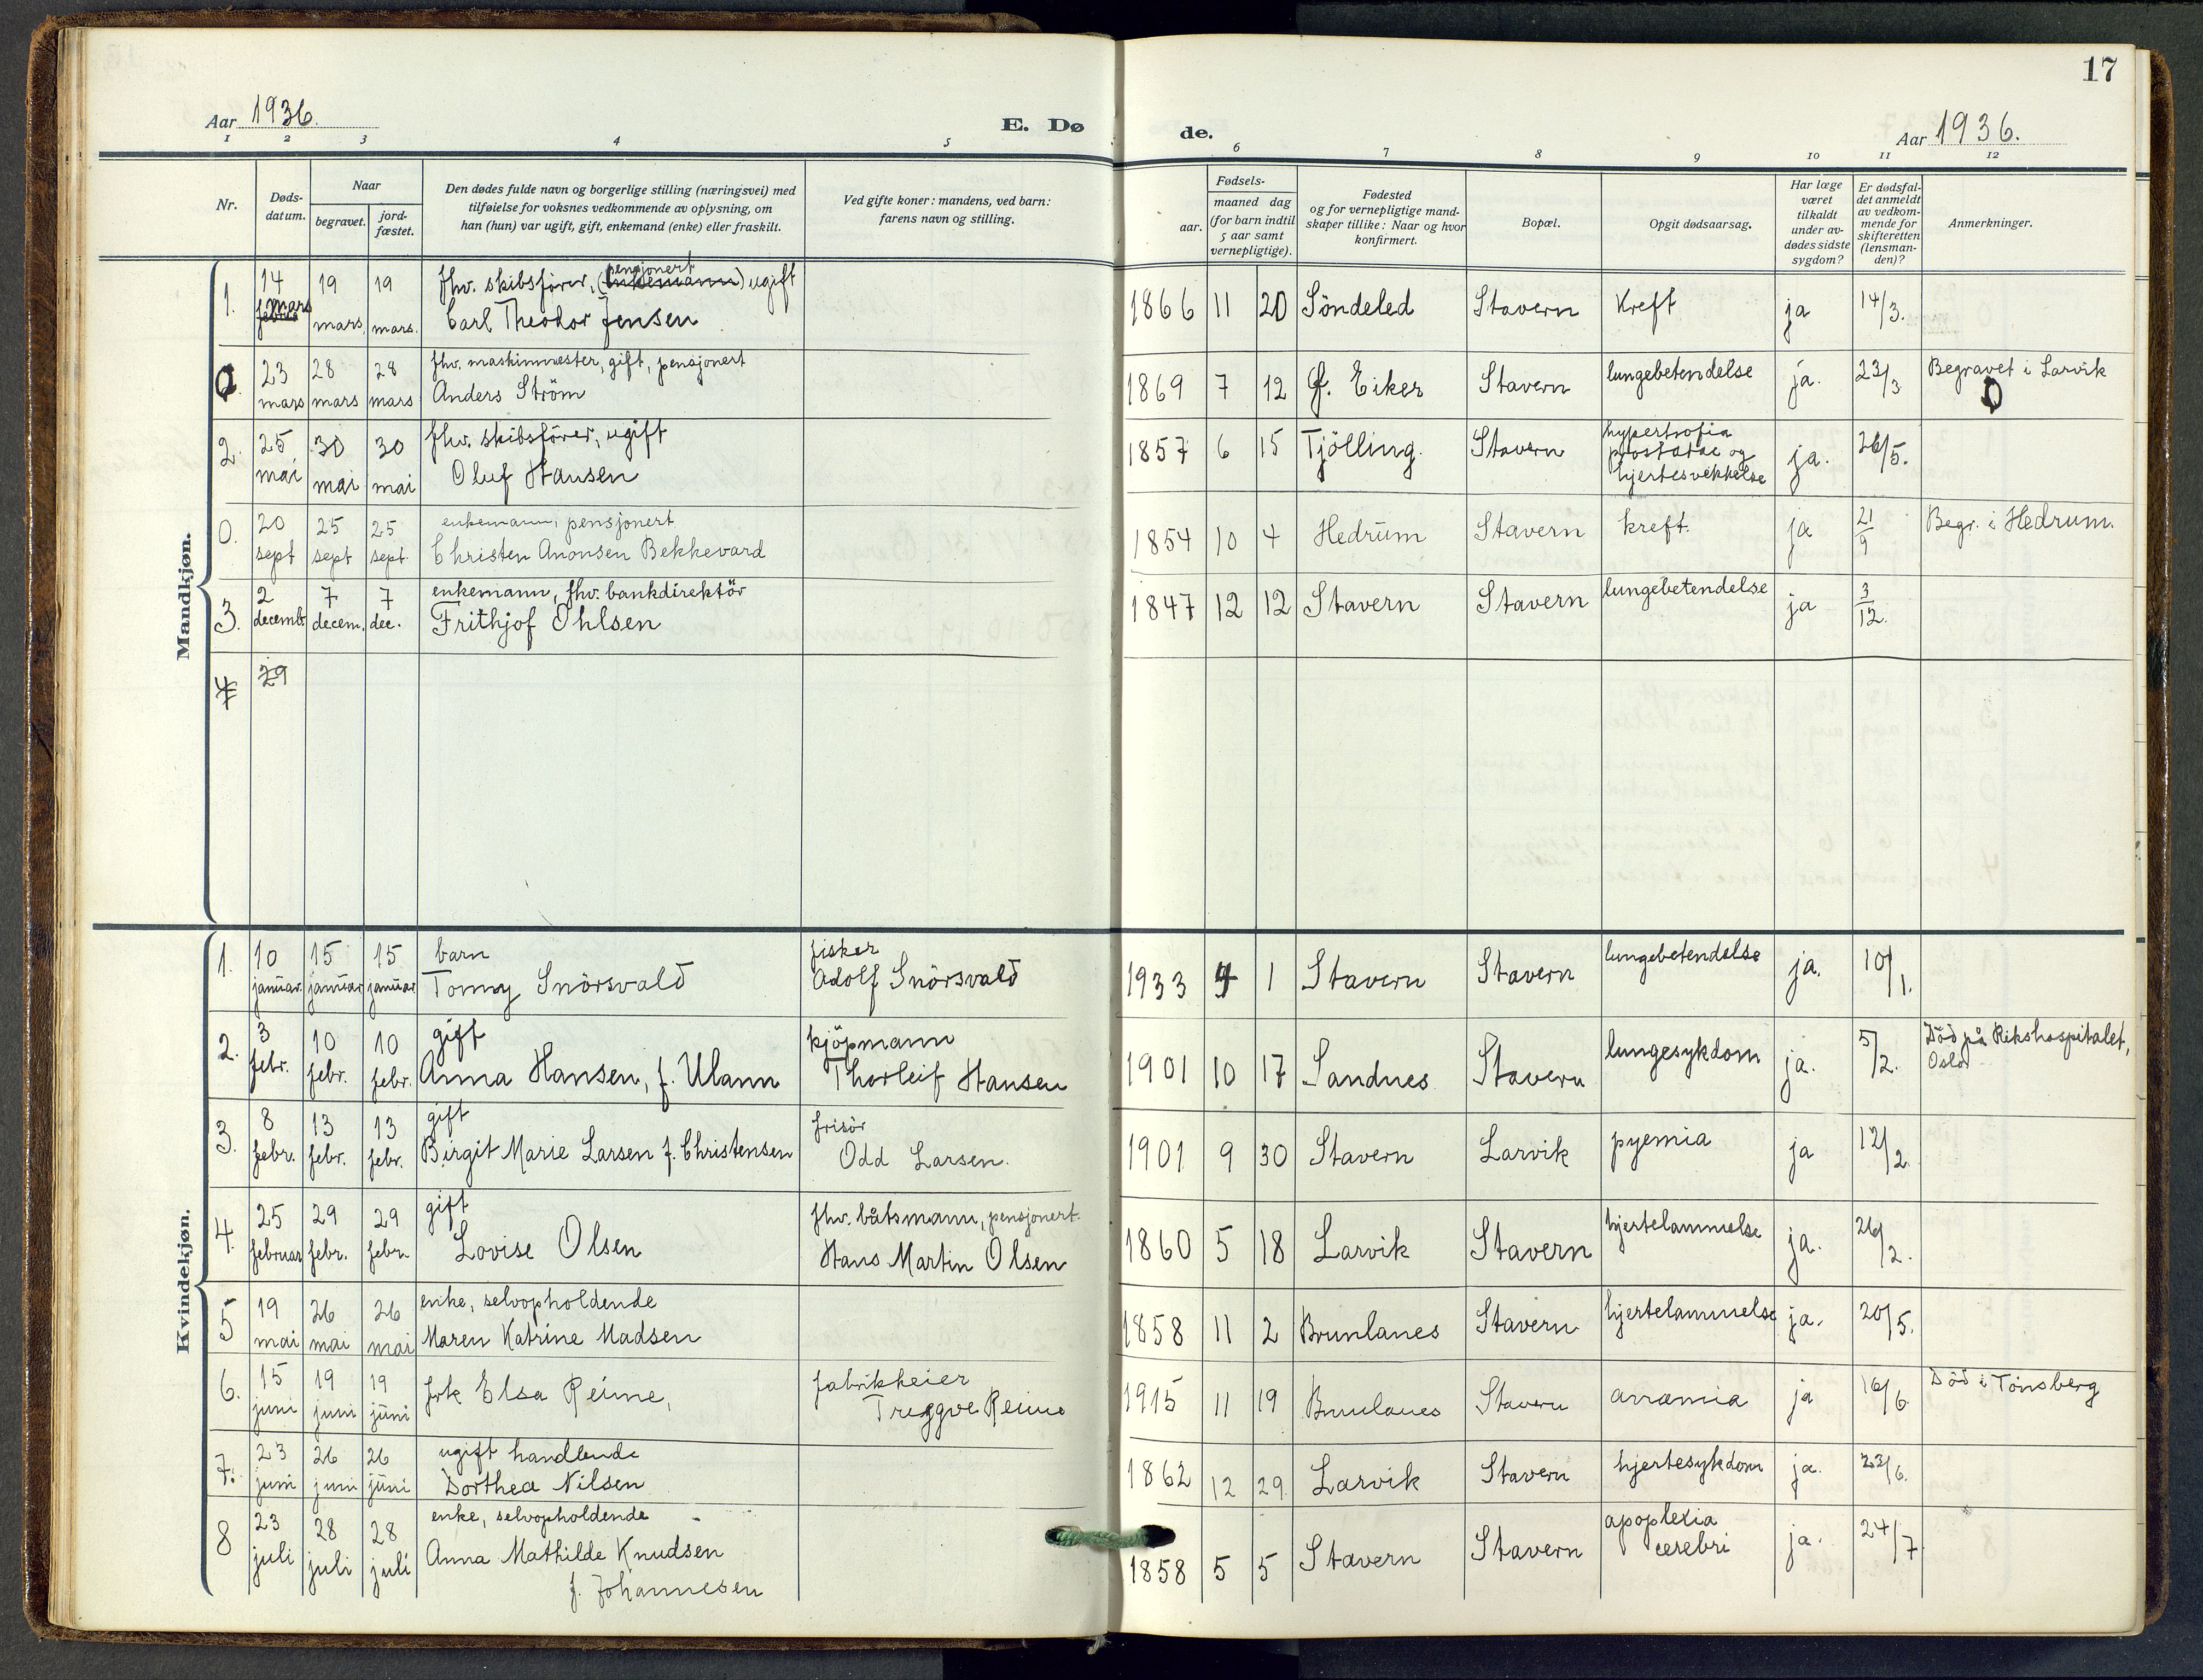 17
Aar 1936.
E. Dø
de.
Aar 1936.
1 2 3 4 5
6 7 8 9 10 11 12
Nr.
Døds-
datum.
Naar
begravet.
jord-
fæstet.
Den dødes fulde navn og borgerlige stilling (næringsvei) med
tilføielse for voksnes vedkommende av oplysning, om
han (hun) var ugift, gift, enkemand (enke) eller fraskilt.
Ved gifte koner: mandens, ved barn:
farens navn og stilling.
Fødsels-
aar.
maaned dag
(for barn indtil
5 aar samt
vernepligtige).
Fødested
og for vernepligtige mand-
skaper tillike: Naar og hvor
konfirmert.
Bopæl.
Opgit dødsaarsag.
Har læge
været
tilkaldt
under av-
dødes sidste
sygdom?
Er dødsfal-
det anmeldt
av vedkom-
mende for
skifteretten
(lensman-
den)?
Anmerkninger.
Mandkjøn.
1. 14 mars 19 mars. 19 mars.
pensjonert
fhv. skibsfører, (enkemann) ugift
Carl Theodor Jensen
1866 11 20 Söndeled Stavern Kreft ja 14/3.
0. 23 mars 28 mars 28 mars
fhv. maskinmester, gift, pensjonert
Anders Ström
1869 7 12 Ø. Eiker Stavern lungebetendelse ja. 23/3 Begravet i Larvik
0
2. 25 mai 30 mai 30 mai
fhv. skibsfører, ugift
Oluf Hansen
1857 6 15 Tjölling. Stavern hypertrofia
prostatae og
hjertesvekkelse ja. 26/5.
0. 20 sept 25 sept 25 sept.
enkemann, pensjonert
Christen Anonsen Bekkevard
1854 10 4 Hedrum Stavern kreft. ja 21/9 Begr. i Hedrum.
3. 2 decemb. 7 decem. 7 dec.
enkemann, fhv. bankdirektör
Frithjof Ohlsen
1847 12 12 Stavern Stavern lungebetendelse ja 3/12.
4 29
Kvindekjøn.
1. 10 januar. 15 januar 15 januar
barn
Tonny Snörsvald
fisker
Adolf Snörsvald
1933 4 1 Stavern Stavern lungebetendelse ja. 10/1.
2. 3 febr. 10 febr. 10 febr.
gift
Anna Hansen, f. Ulann
kjöpmann
Thorleif Hansen
1901 10 17 Sandnes Stavern lungesykdom ja. 5/2. Död på Rikshospitalet,
Oslo
3. 8 febr. 13 febr. 13 febr.
gift
Birgit Marie Larsen f. Christensen
frisör
Odd Larsen.
1901 9 30 Stavern Larvik pyemia ja 12/2.
4. 25 februar 29 febr. 29 febr.
gift
Lovise Olsen
fhv. båtsmann, pensjonert.
Hans Martin Olsen
1860 5 18 Larvik Stavern hjertelammelse ja. 26/2.
5 19 mai 26 mai 26 mai
enke, selvopholdende
Maren Katrine Madsen
1858 11 2 Brunlanes Stavern hjertelammelse ja. 20/5.
6. 15 juni 19 juni 19 juni
frk Elsa Reime,
fabrikkeier
Tryggve Reime
1915 11 19 Brunlanes Stavern anæmia ja 16/6 Död i Tönsberg
7. 23 juni 26 juni 26 juni
ugift handlende
Dorthea Nilsen
1862 12 29. Larvik Stavern hjertesykdom ja. 23/6.
8 23 juli 28 juli 28 juli
enke, selvopholdende
Anna Mathilde Knudsen
f. Johannesen
1858 5 5 Stavern Stavern apoplexia
cerebri ja. 24/7